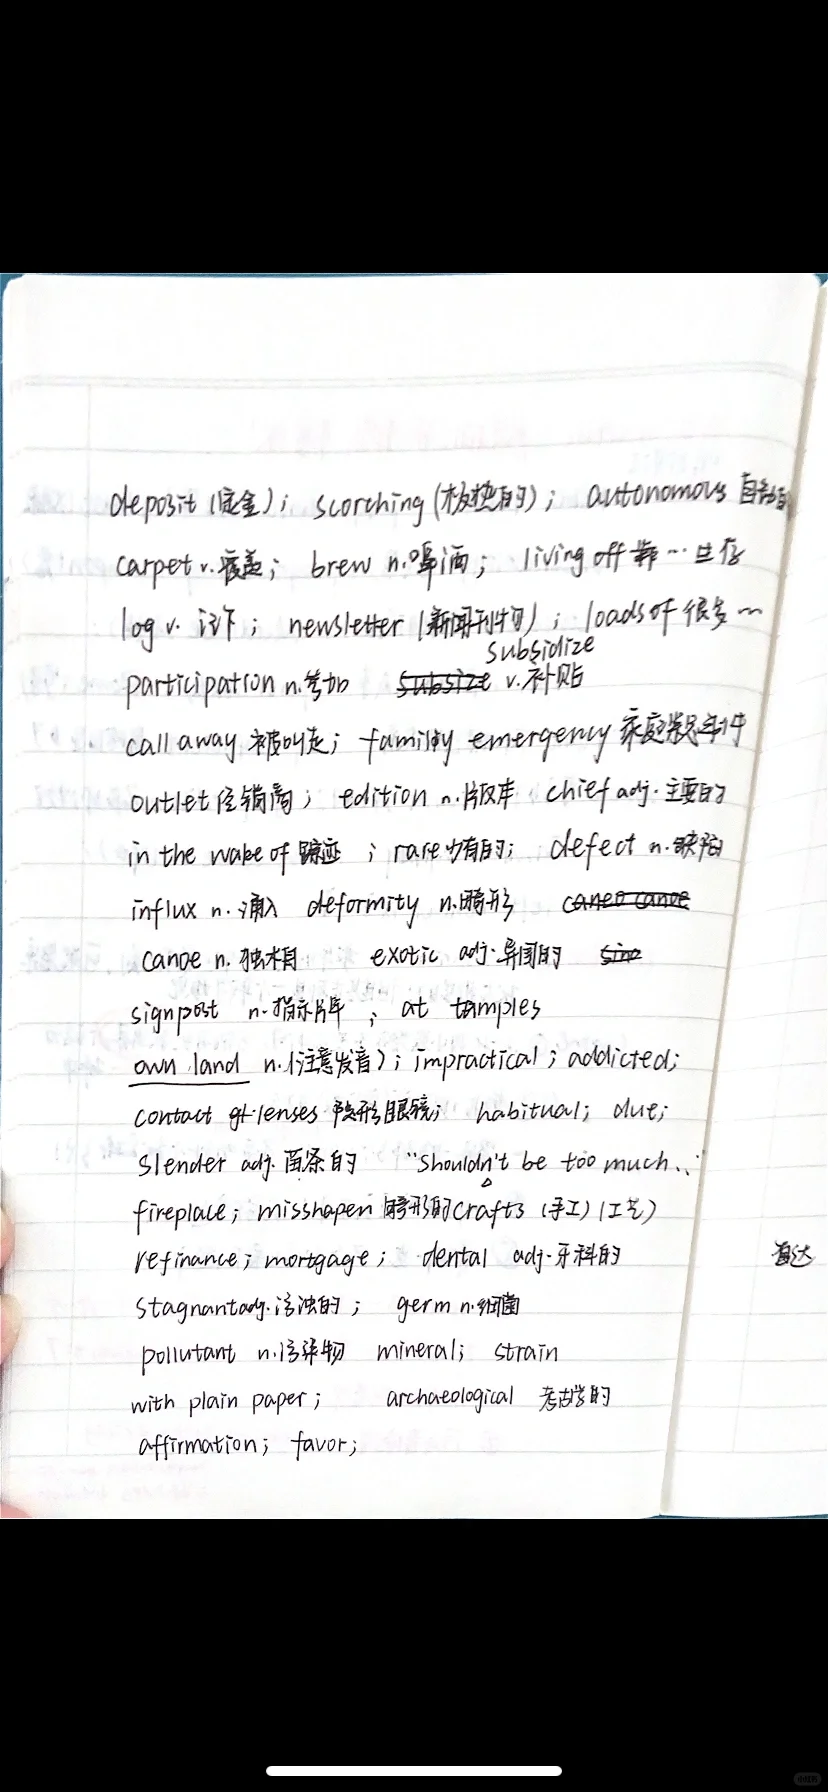 deposit (定金); scorching (极热的); autonomous 自治的
carpet v.覆盖; brew n.啤酒; living off 靠…生存
log v. 记下; newsletter (新闻刊物); loads of 很多…
subsidize
participation n.参加 subsize v.补贴
call away 被叫走; family emergency 家庭紧急事件
outlet 经销商; edition n.版本 chief adj.主要的
in the wake of 踪迹; rare 少有的; defect n.缺陷
influx n.涌入 deformity n.畸形 caneo canoe
canoe n.独木舟 exotic adj.异国的 sine
signpost n.指示牌; at tamples
own land n.(注意发音); impractical; addicted;
contact lenses 隐形眼镜; habitual; due;
slender adj.苗条的 "shouldn't be too much..."
fireplace; misshapen 畸形的 crafts (手工)(工艺)
refinance; mortgage; dental adj.牙科的 直达
stagnant adj.污浊的; germ n.细菌
pollutant n.污染物 mineral; strain
with plain paper; archaeological 考古学的
affirmation; favor;